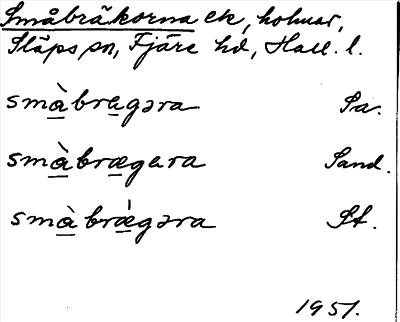 Småbräkorna ek, holmar,
Släps sn, Fjäre hd, Hall. l.
smàbragəra Sa.
smàbrægara Sand.
smàbrǽgəra St.
1951.